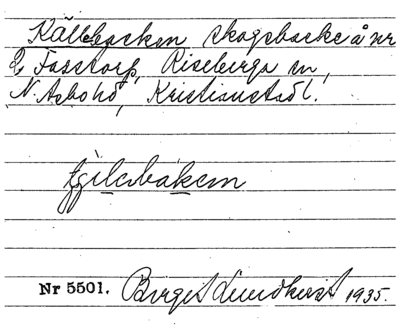 Källebacken skogsbacke å nr
2 Fasstorp, Riseberga sn,
N. Åsbo hd, Kristianstad l.
Nr 5501. Birgit Lundkvist 1935.